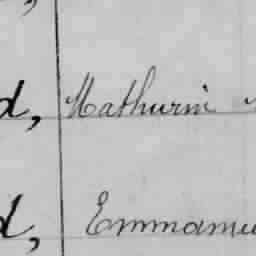 d, Mathurin
d, Emmanu